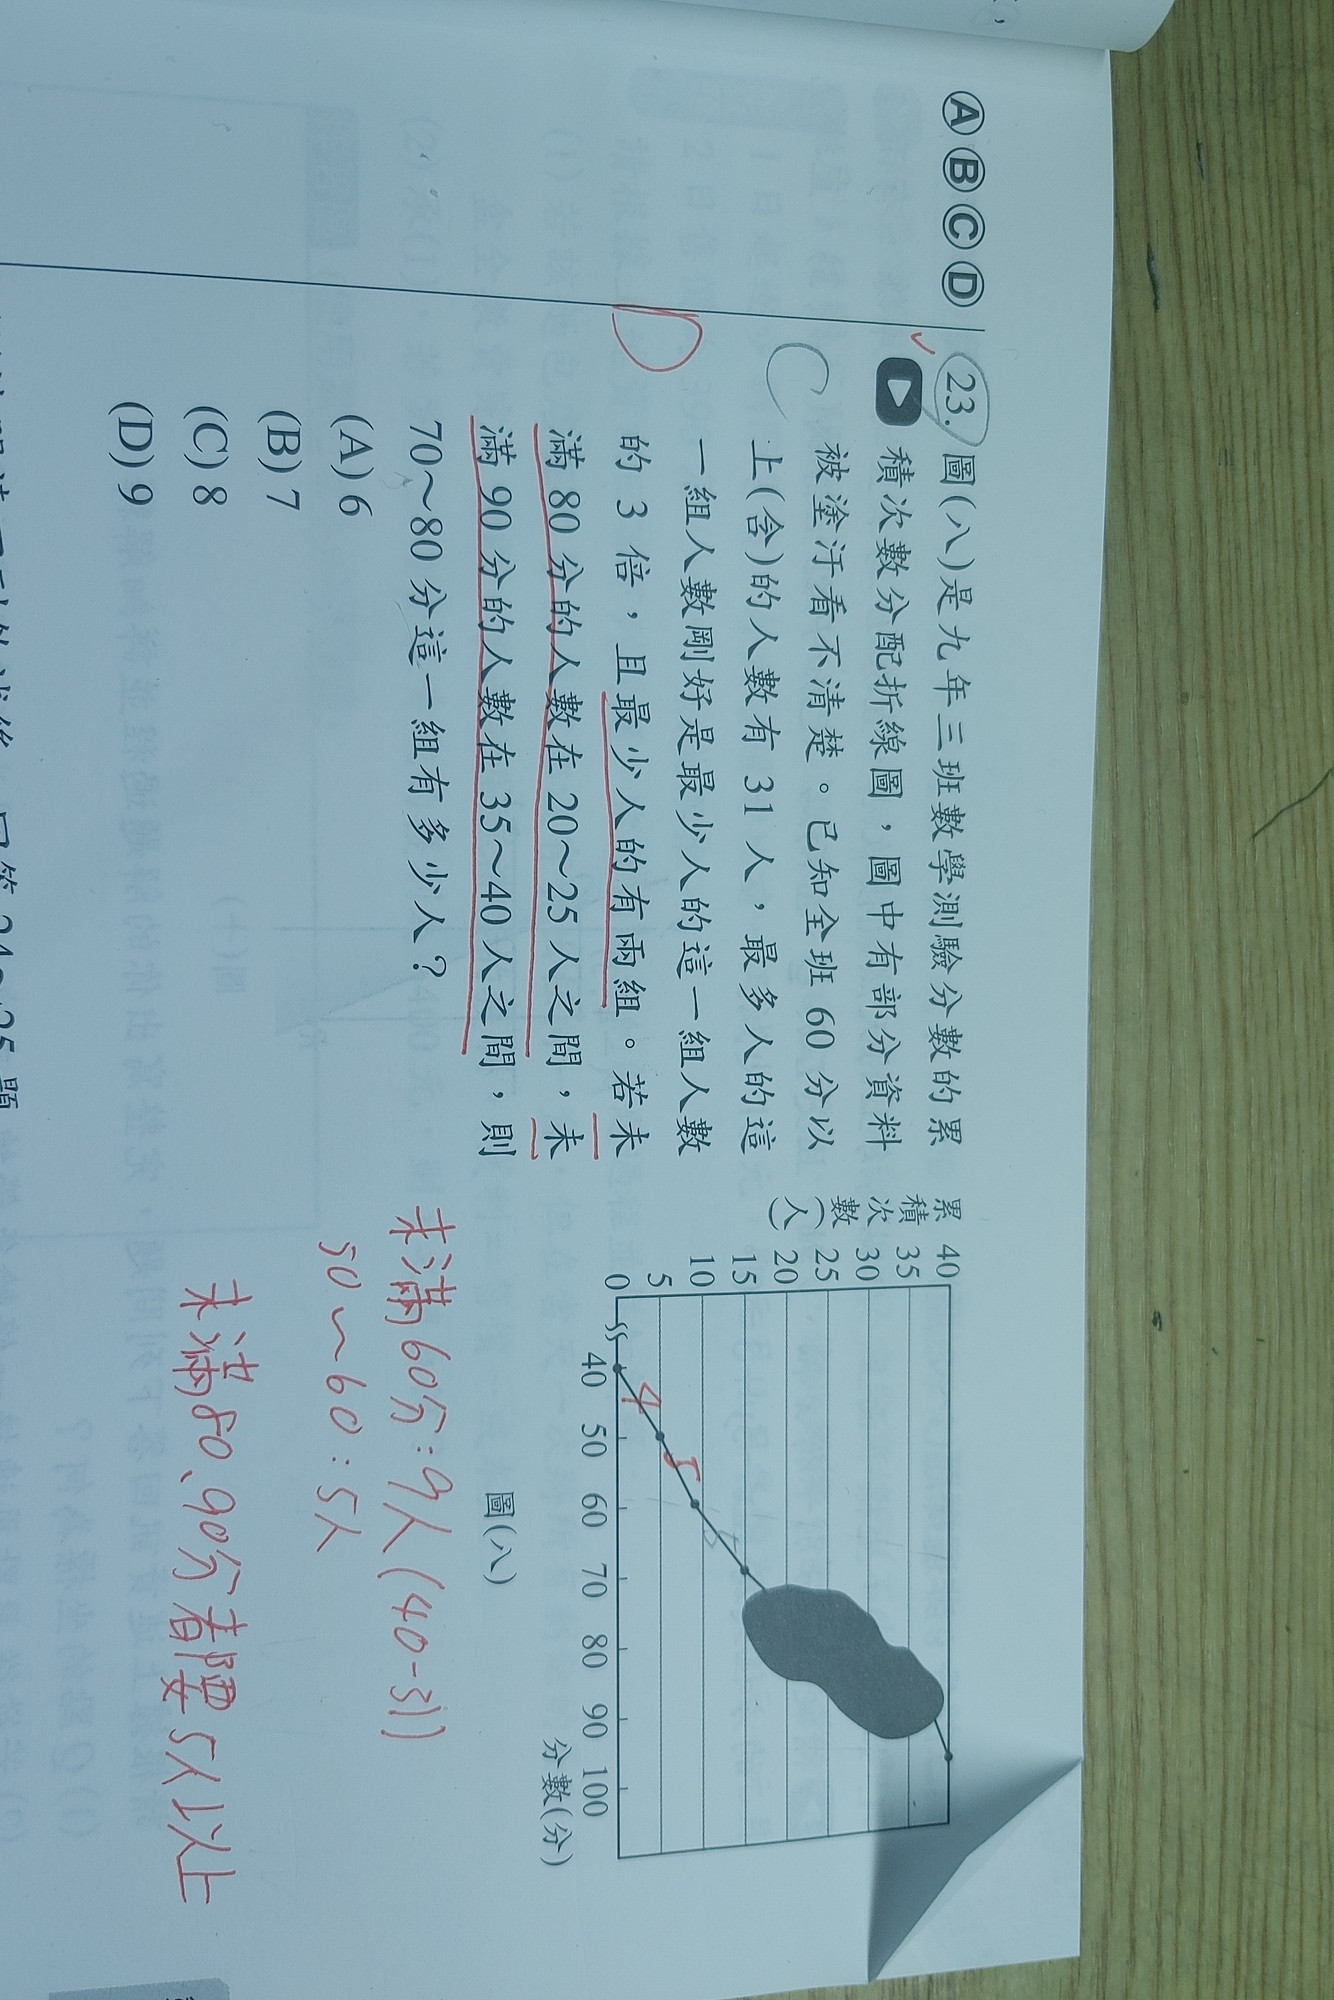 Ⓐ Ⓑ Ⓒ Ⓓ
23. 圖(八)是九年三班數學測驗分數的累
積次數分配折線圖，圖中有部分資料
被塗汙看不清楚。已知全班 60 分以
上(含)的人數有 31 人，最多人的這
一組人數剛好是最少人的這一組人數
的 3 倍，且最少人的有兩組。若未
滿 80 分的人數在 20～25 人之間，未
滿 90 分的人數在 35～40 人之間，則
70～80 分這一組有多少人？
(A) 6
(B) 7
(C) 8
(D) 9
C
D
累積次數(人)
40
35
30
25
20
15
10
5
0
40 50 60 70 80 90 100
分數(分)
圖(八)
4
5
未滿60分：9人(40-31)
50～60：5人
未滿80、90分都要5人以上